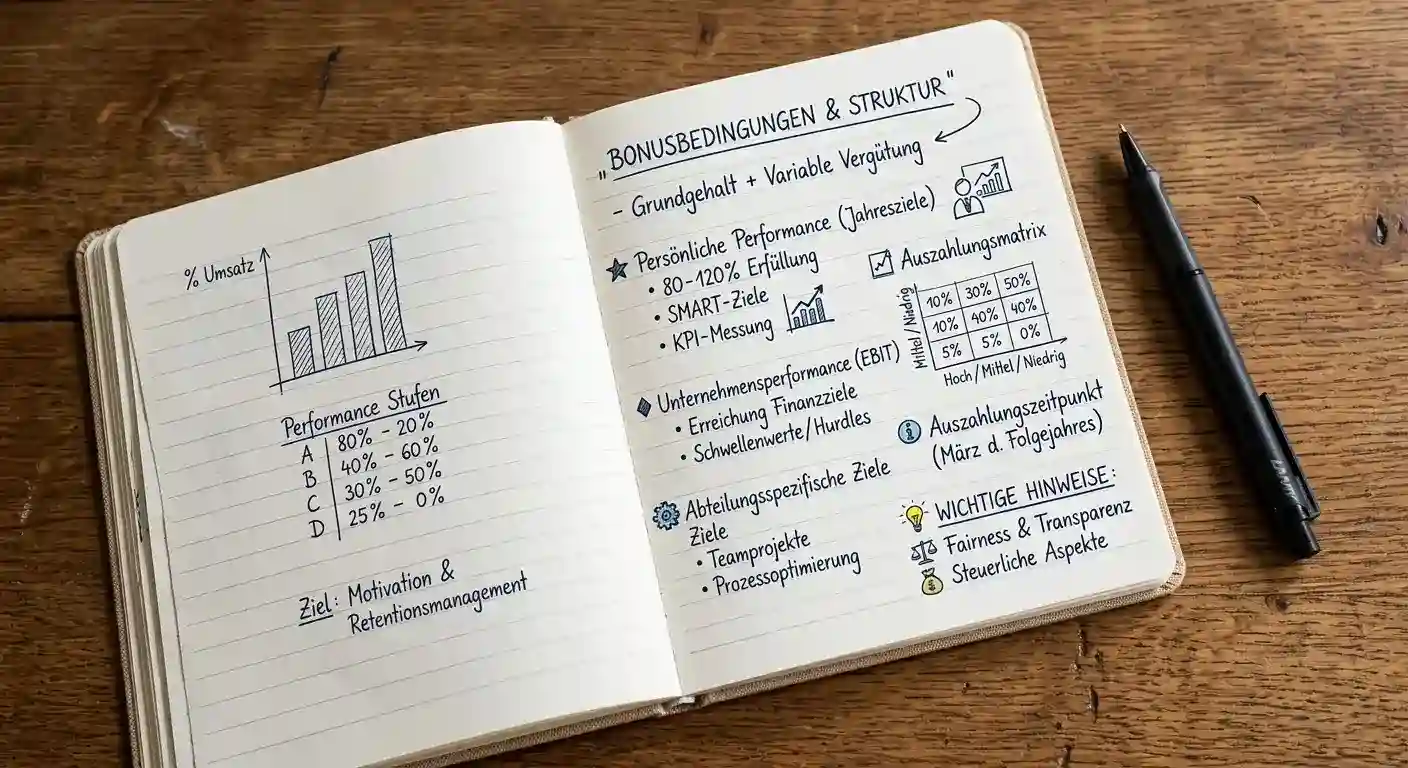 % Umsatz
Performance Stufen
A 80% - 20%
B 40% - 60%
C 30% - 50%
D 25% - 0%
Ziel: Motivation &
Retentionsmanagement
"BONUSBEDINGUNGEN & STRUKTUR"
- Grundgehalt + Variable Vergütung
Persönliche Performance (Jahresziele)
• 80-120% Erfüllung
• SMART-Ziele
• KPI-Messung
Unternehmensperformance (EBIT)
• Erreichung Finanzziele
• Schwellenwerte/Hurdles
Abteilungsspezifische Ziele
Ziele
• Teamprojekte
• Prozessoptimierung
Auszahlungsmatrix
Mittel/Niedrig
10% 30% 50%
10% 40% 40%
5% 5% 0%
Hoch/Mittel/Niedrig
Auszahlungszeitpunkt
(März d. Folgejahres)
WICHTIGE HINWEISE:
Fairness & Transparenz
Steuerliche Aspekte